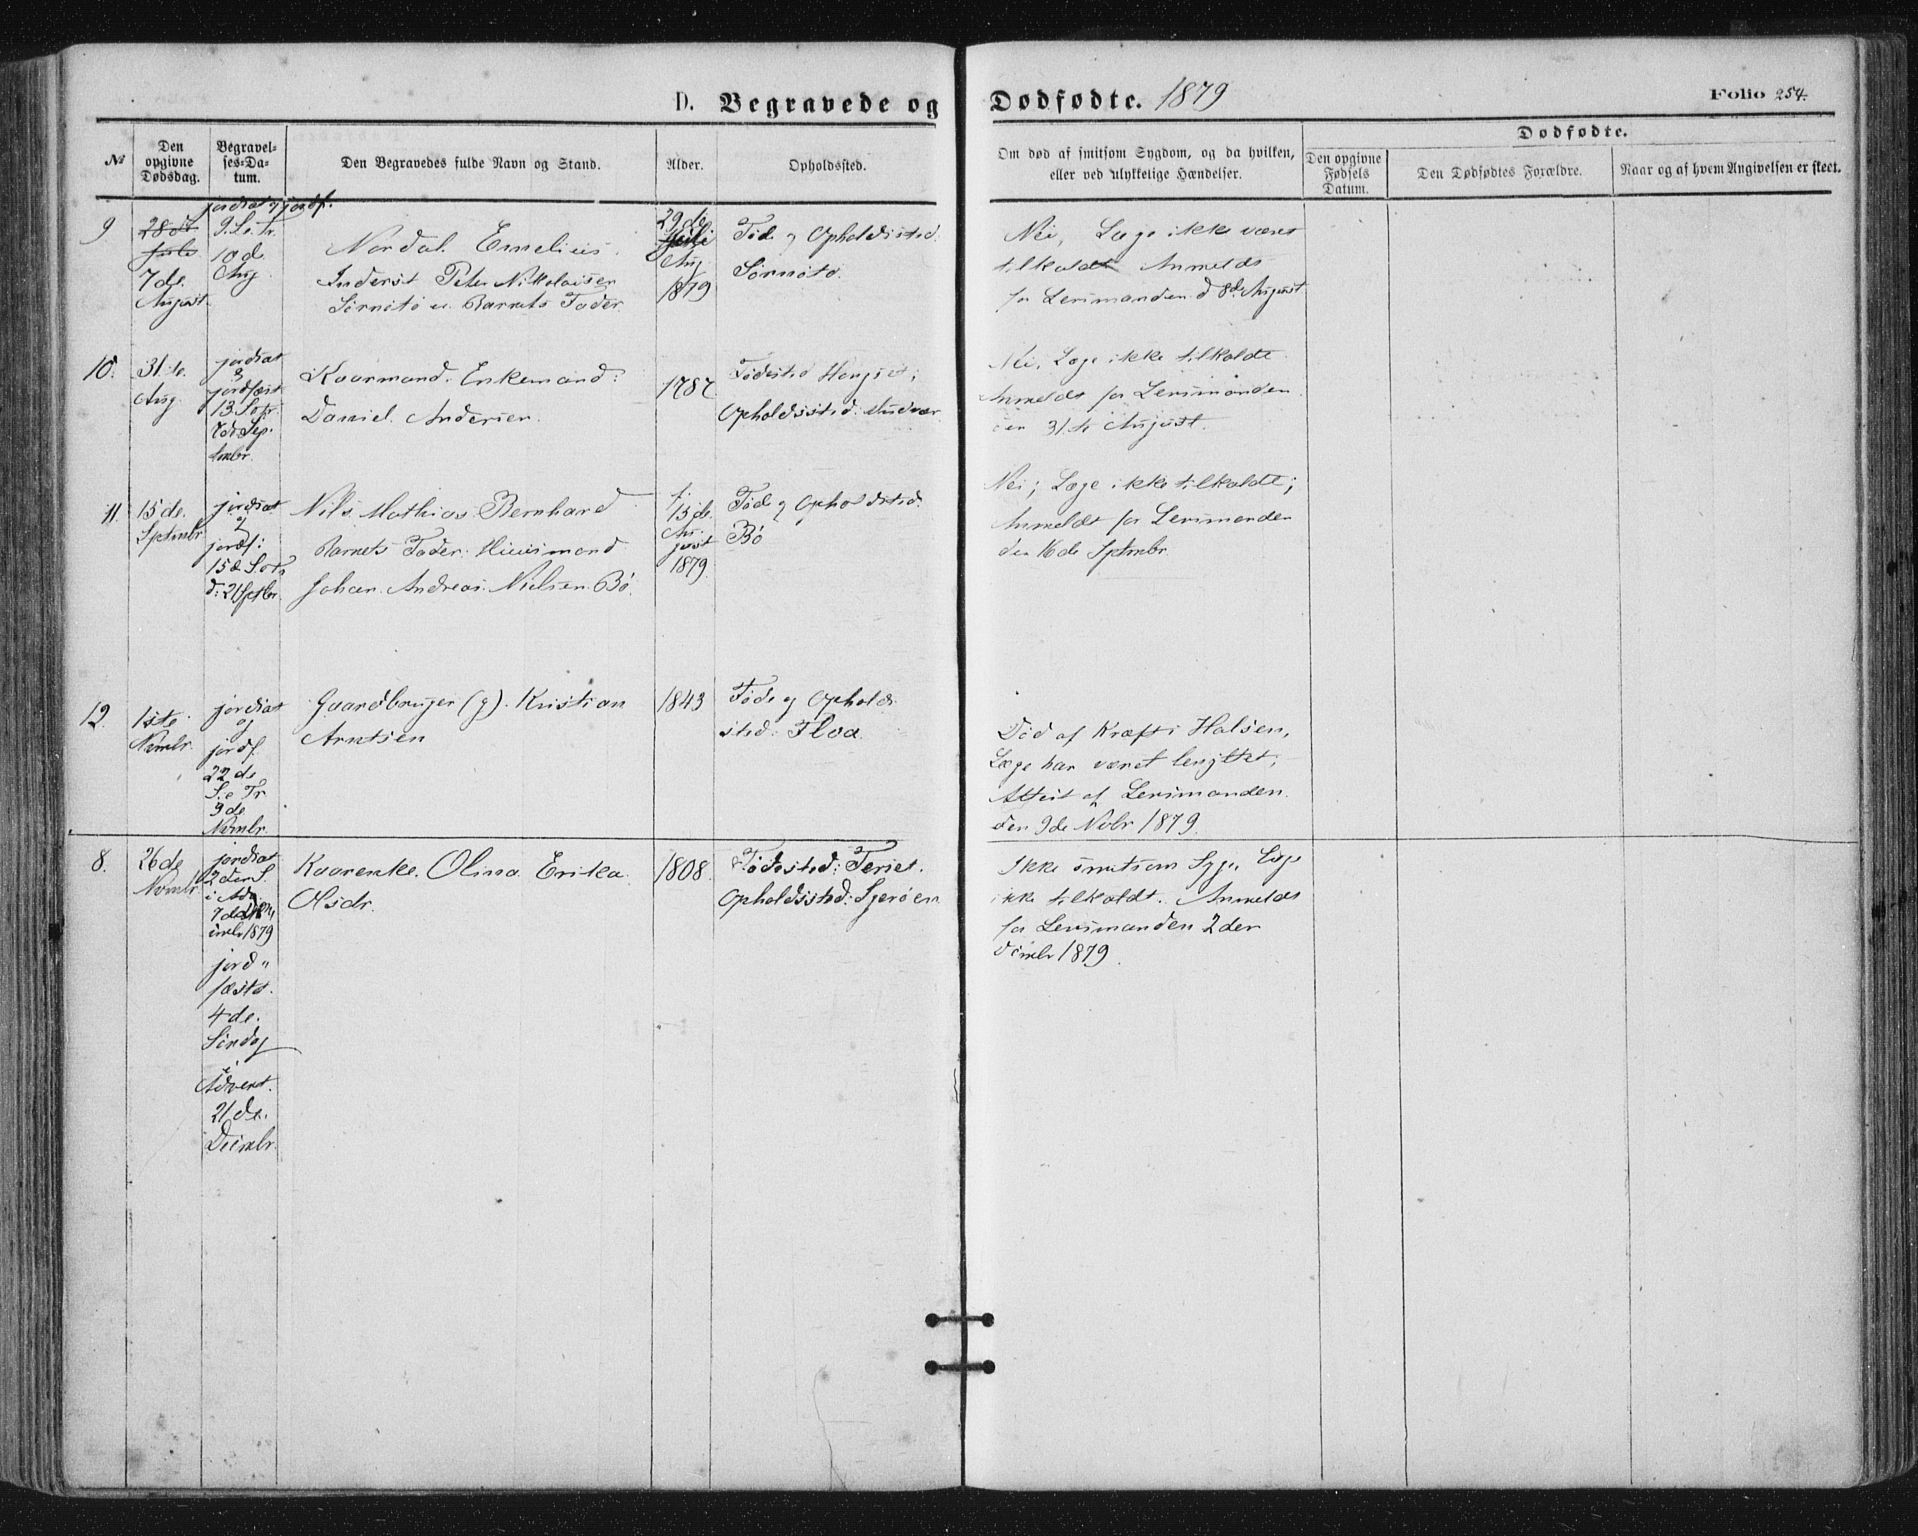 D. Begravede og Dødfødte. 1879
Folio 254.
№
Den opgivne Dødsdag.
Begravelses-Datum.
Den Begravedes fulde Navn og Stand.
Alder.
Opholdssted.
Om død af smitsom Sygdom, og da hvilken,
eller ved ulykkelige Hændelser.
Dødfødte.
Den opgivne Fødsels Datum.
Den Dødfødtes Forældre.
Naar og af hvem Angivelsen er skeet.
9
28de
Juli
7de
August
jordsat og jordf.
9. S. e. Tr.
10d.
Aug
Nordal Emelius.
Inderst Peter Nikolaisen
Sørnøtø er Barnets Fader
29de
Juli
Aug
1879
Føde og Opholdssted:
Sørnøtø.
Nei, Læge ikke været
tilkaldt Anmeldt
for Lensmanden d 8de August
10.
31te
Aug
jordsat
og
jordfæst
13 Sot.
7de Sep-
tembr.
Kaarmand. Enkemand:
Daniel Andersen.
1787
Fødested
Opholdssted: Husvær
Nei, Læge ikke tilkaldt
Anmeldt for Lensmanden
den 31te August.
11.
15de
Septmbr
jordsat
og
jordf:
15d Sot
d: 21 Septbr.
Nils Mathias Bernhard
Barnets Fader: Huusmand
Johan Andreas Nielsen Bø.
13de
Au-
gust
1879
Føde og Opholdssted
Bø
Nei; Læge ikke tilkaldt;
Anmeldt for Lensmanden
den 16de Sptmbr
12.
1ste
Novmbr.
jordsat
og
jordf.
22de
S. e Tr
9de
Novmbr.
Gaardbruger (g). Kristian
Arntsen
1843
Føde og Opholds
sted: Floa
Død af Kræft i Halsen,
Læge har været benyttet;
Attest af Lensmanden
den 9de Nobr 1879.
8.
26de
Novmbr
jordsat
2den S
i Adv
7de
1879
jord-
fæstet
4de.
Søndag
i
Advent.
21de.
Decmbr.
Kaarenke. Olina Erika
Olsdr.
1808.
Fødested:
Opholdssted:
Ikke smitsom Syge, Læge
ikke tilkaldt. Anmeldt
for Lensmanden 2den
Decmbr 1879.